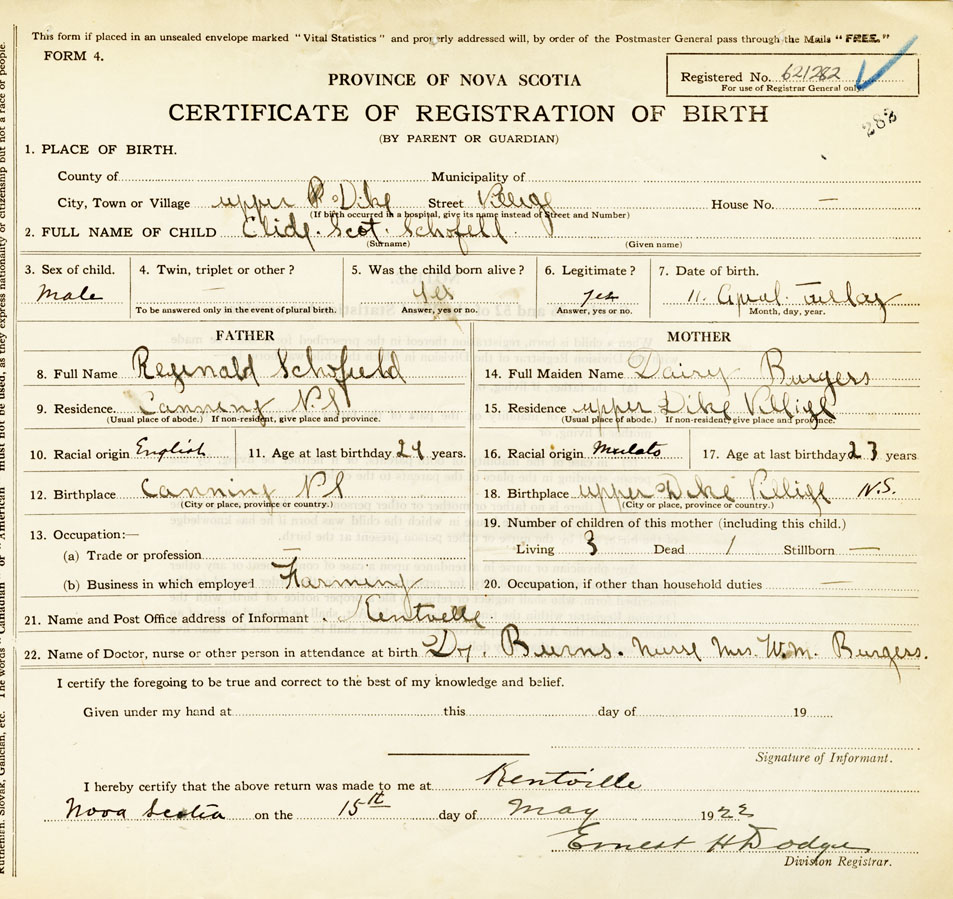 This form if placed in an unsealed envelope marked "Vital Statistics" and properly addressed will, by order of the Postmaster General pass through the Mails "FREE."
FORM 4.
PROVINCE OF NOVA SCOTIA
Registered No. 621282
For use of Registrar General only.
282
CERTIFICATE OF REGISTRATION OF BIRTH
(BY PARENT OR GUARDIAN)
1. PLACE OF BIRTH.
County of Municipality of
City, Town or Village upper Dike Street Villige House No. —
(If birth occurred in a hospital, give its name instead of Street and Number)
2. FULL NAME OF CHILD Clide. Scot. Schofell.
(Surname) (Given name)
3. Sex of child. 4. Twin, triplet or other? 5. Was the child born alive? 6. Legitimate? 7. Date of birth.
Male — yes yes 11. April.
To be answered only in the event of plural birth. Answer, yes or no. Answer, yes or no. Month, day, year.
FATHER MOTHER
8. Full Name Reginald Schofield 14. Full Maiden Name Dairy Burgers
9. Residence. Canning N.S 15. Residence upper Dike Villige
(Usual place of abode.) If non-resident, give place and province. (Usual place of abode.) If non-resident, give place and province.
10. Racial origin English 11. Age at last birthday 24 years. 16. Racial origin Mulato 17. Age at last birthday 23 years
12. Birthplace Canning N.S 18. Birthplace upper Dike Villige N.S.
(City or place, province or country.) (City or place, province or country.)
13. Occupation:— 19. Number of children of this mother (including this child.)
(a) Trade or profession. — Living 3 Dead 1 Stillborn —
(b) Business in which employed Farming 20. Occupation, if other than household duties —
21. Name and Post Office address of Informant . Kentvelle.
22. Name of Doctor, nurse or other person in attendance at birth Dr. Burns. Nurse Mrs. W.M. Burgers.
I certify the foregoing to be true and correct to the best of my knowledge and belief.
Given under my hand at this day of 19
Signature of Informant.
I hereby certify that the above return was made to me at Kentville
Nova Scotia on the 15th day of May 1922
Ernest H Dodge
Division Registrar.
Ruthenian, Slovak, Galician, etc. The words "Canadian" or "American" must not be used, as they express nationality or citizenship but not a race or people.